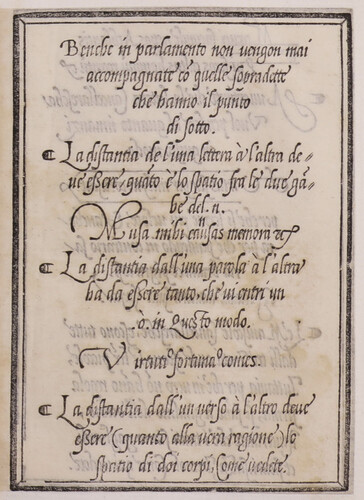 Benche in parlamento non vengon mai
accompagnate cō quelle sopradette
che hanno il punto
di sotto.
La distantia de l'una lettera à l'altra de-
ve eßere, quāto è lo spatio fra le due gā-
be del. n.
Musa mihi causas memora
n
La distantia dall'una parola à l'altra
ha da eßere tanto, che vi entri un
.o. in Questo modo.
Virtuti° fortuna° comes.
La distantia dall'un verso à l'altro deve
eßere (quanto alla vera ragione) lo
spatio di doi corpi, Come vedete.